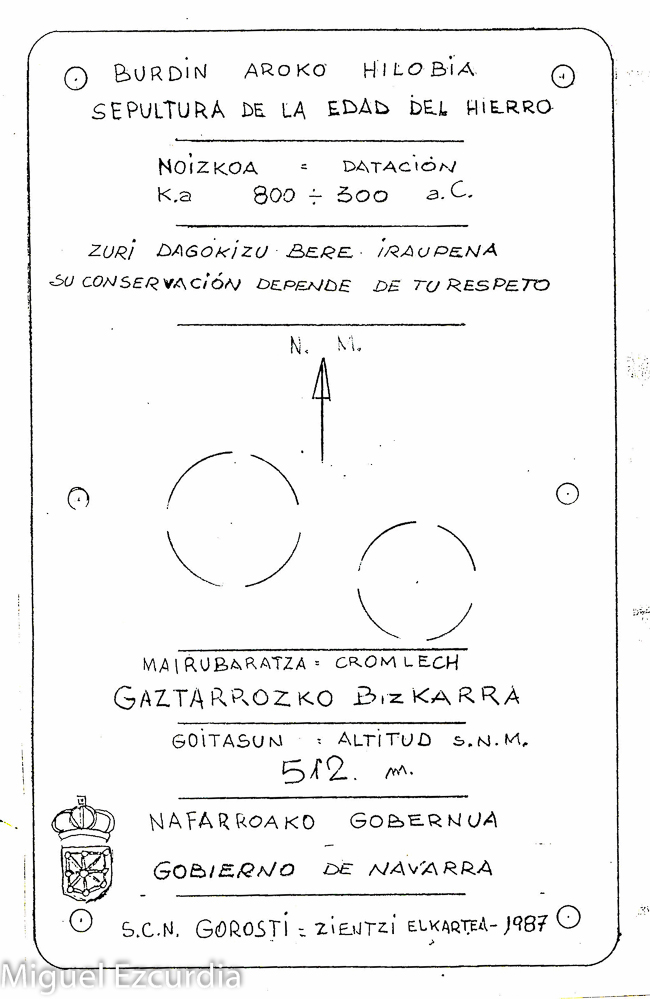 BURDIN AROKO HILOBIA
SEPULTURA DE LA EDAD DEL HIERRO
NOIZKOA = DATACIÓN
K.a 800 ÷ 300 a.C.
ZURI DAGOKIZU BERE IRAUPENA
SU CONSERVACIÓN DEPENDE DE TU RESPETO
N. M.
MAIRUBARATZA = CROMLECH
GAZTARROZKO BIZKARRA
GOITASUN : ALTITUD S.N.M.
512. m.
NAFARROAKO GOBERNUA
GOBIERNO DE NAVARRA
S.C.N. GOROSTI = ZIENTZI ELKARTEA-1987
Miguel Ezcurdia